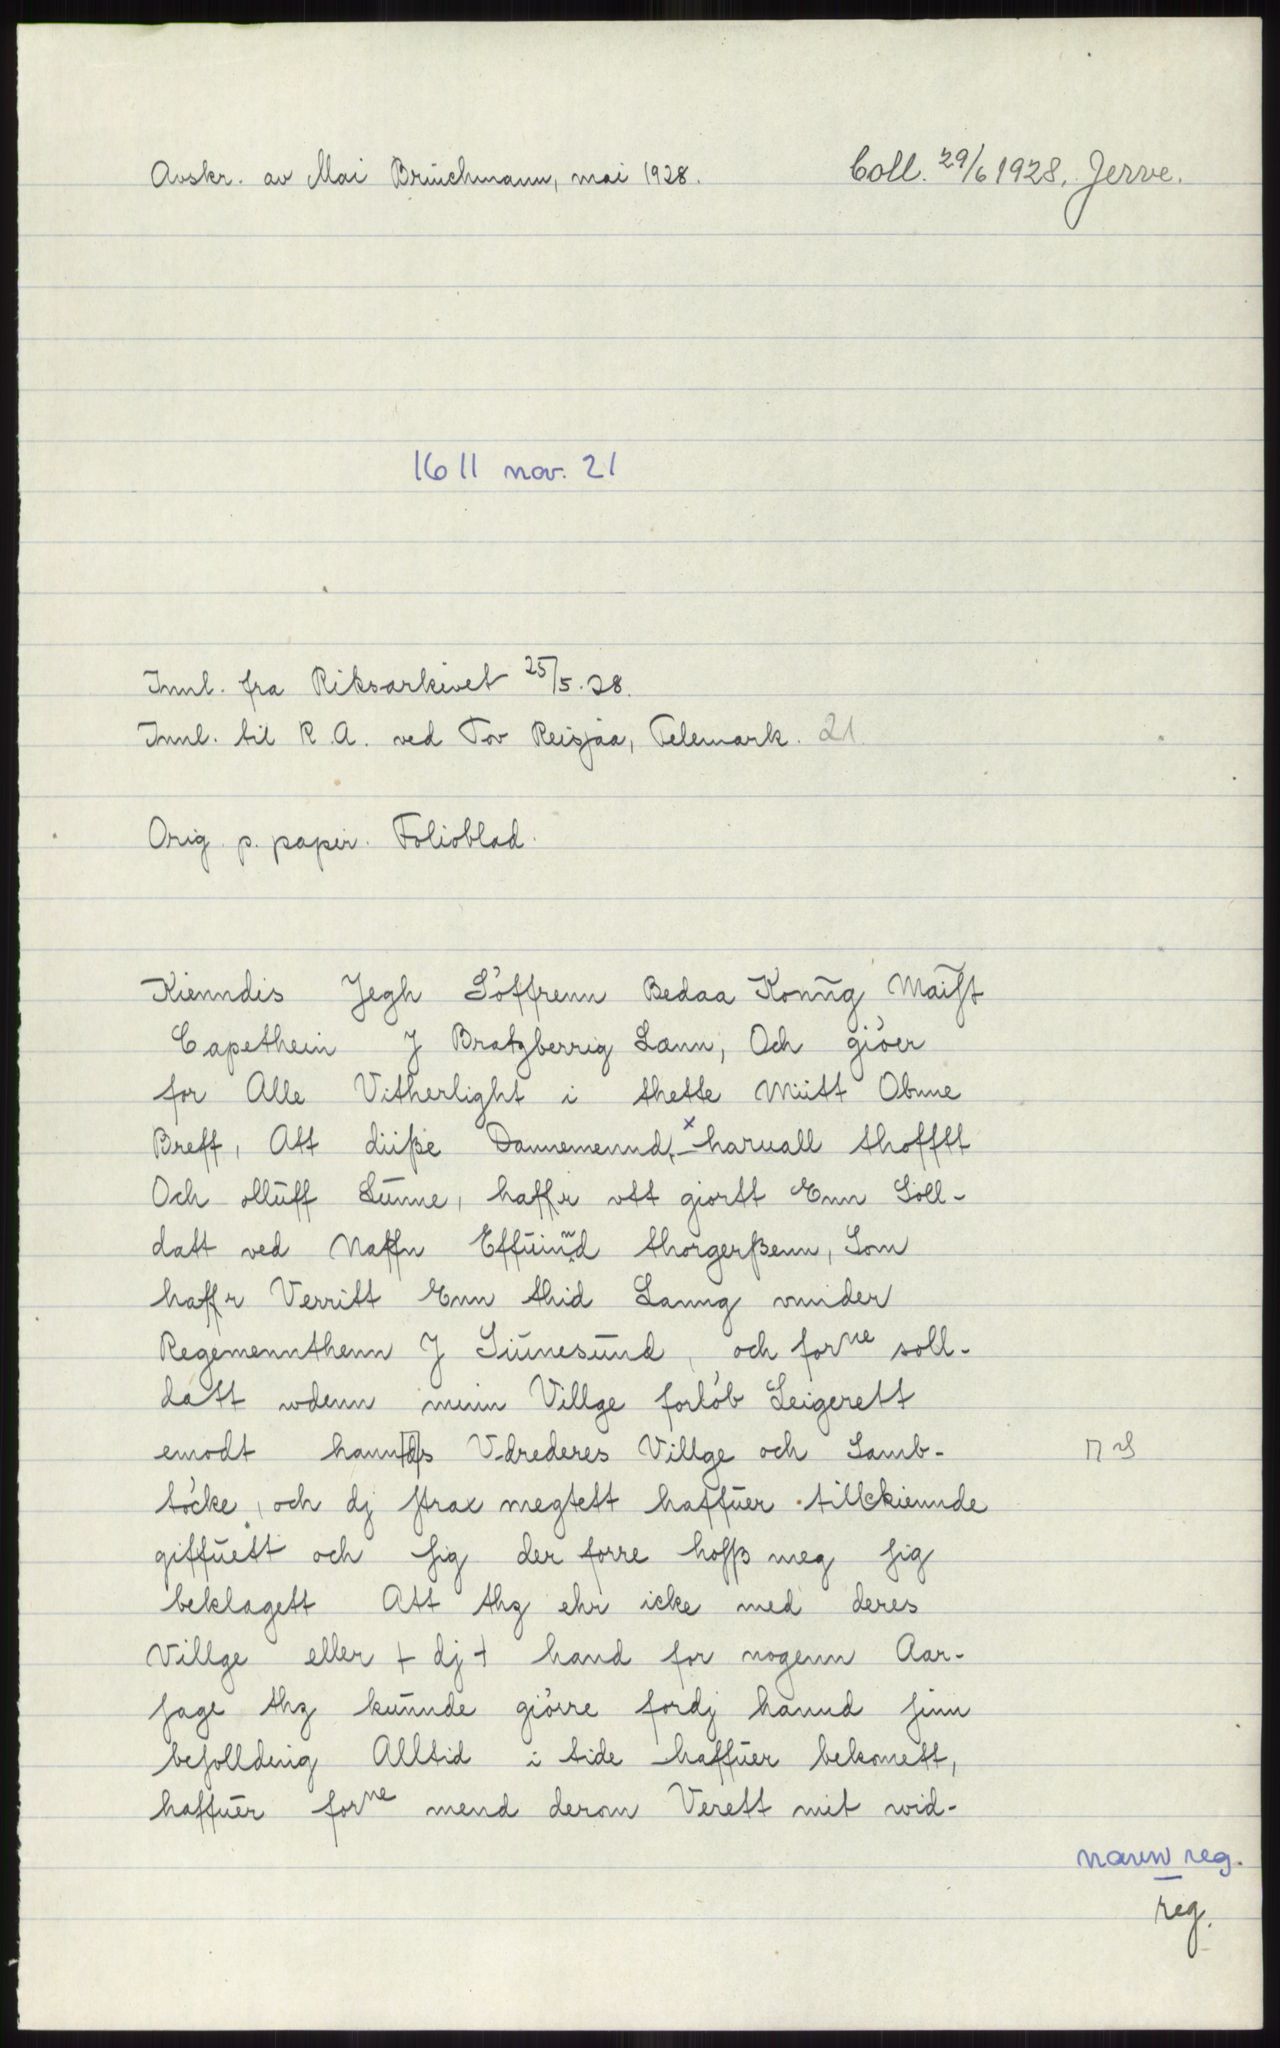 Avskr. av Mai Brüchmann, mai 1928. Coll. 29/6 1928. Jerve.
1611 nov. 21
Innl. fra Riksarkivet 25/5.28.
Innl. til R.A. ved Tov Reisjaa, Telemark. 21
Orig. p. papir. Folioblad.
Kienndis Jegh Söffrenn Bedaa Konng Maiſt
Capethein J Bratzberrig Lænn, Och giöer
for Alle Vitherlight i thette Mütt Obnne
Breff, Att diiße Dannemennd, haruall thofftt
Och olluff Lunne, haffr vtt giortt Enn Soll-
datt ved Naffn Effuinnd thorgerßenn, Som
haffr Verritt Enn thid Lanng vnnder
Regemennthenn J Siünesund, och forne soll-
datt wdenn minn Villge forlöb Leigerett
emodt hann[d]s V-drederes Villge och Samb-
töcke, och dj ſtrax megtett haffuer tillkiennde
giffuett och ſig der forre hoſß meg ſig
beklagett Att thz ehr icke med deres
Villge eller + dj + hand for nogenn Aar-
ſage thz kunnde giörre fordj hannd ſinn
beſolldnig Alltid i tide haffuer bekomett,
haffuer forne mend derom Verett mit vid-
navnreg.
reg.